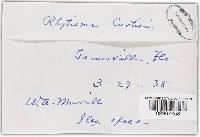 Rhytisma Curtisii.
Gainesville, Fla.
3 - 27 - 38
W.A. Murrill
Ilex opaca